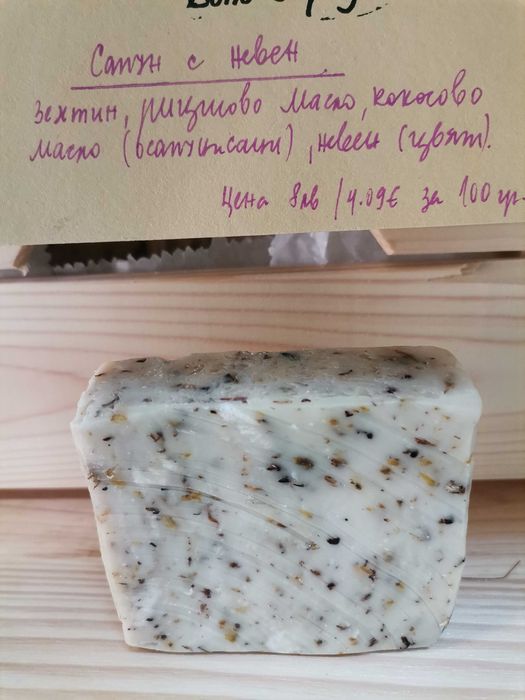 Сапун с невен
Зехтин, рициново масло, кокосово
масло (осапунисани), невен (цвят).
Цена 8лв /4.09€ за 100 гр.